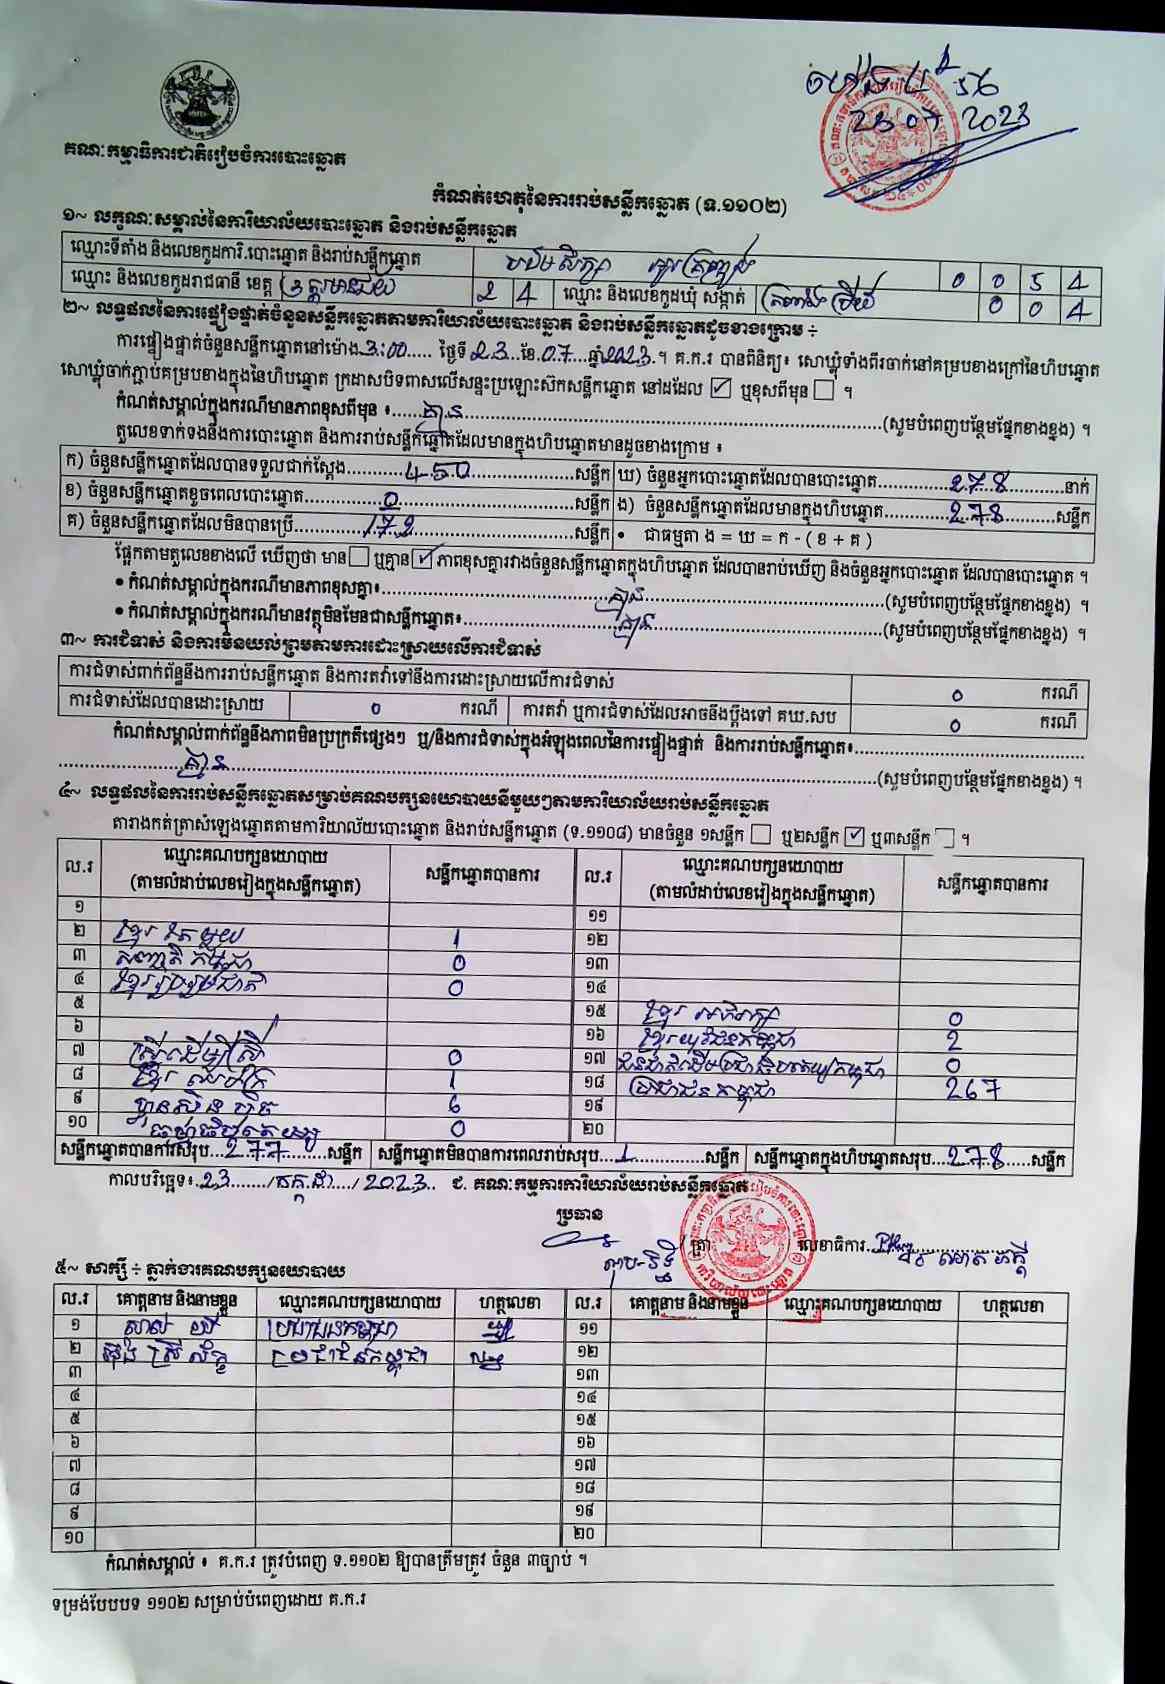 ២៣ 07 2023
គណៈកម្មាធិការជាតិរៀបចំការបោះឆ្នោត
កំណត់ហេតុនៃការរាប់សន្លឹកឆ្នោត (ទ.១១០២)
១~ លក្ខណៈសម្គាល់នៃការិយាល័យបោះឆ្នោត និងរាប់សន្លឹកឆ្នោត
ឈ្មោះទីតាំង និងលេខកូដការិ.បោះឆ្នោត និងរាប់សន្លឹកឆ្នោត បឋមសិក្សា 0 0 5 4
ឈ្មោះ និងលេខកូដរាជធានី ខេត្ត ឧត្តរមានជ័យ 2 4 ឈ្មោះ និងលេខកូដឃុំ សង្កាត់ 0 0 4
២~ លទ្ធផលនៃការផ្ទៀងផ្ទាត់ចំនួនសន្លឹកឆ្នោតតាមការិយាល័យបោះឆ្នោត និងរាប់សន្លឹកឆ្នោតដូចខាងក្រោម ÷
ការផ្ទៀងផ្ទាត់ចំនួនសន្លឹកឆ្នោតនៅម៉ោង 3:00 ថ្ងៃទី 23 ខែ 07 ឆ្នាំ 2023 ។ គ.ក.រ បានពិនិត្យ៖ សោឃ្លុំទាំងពីរចាក់នៅគម្របខាងក្រៅនៃហិបឆ្នោត
សោឃ្លុំចាក់ភ្ជាប់គម្របខាងក្នុងនៃហិបឆ្នោត ក្រដាសបិទពាសលើសន្ទះប្រឡោះស៊កសន្លឹកឆ្នោត នៅដដែល ☑ ឬខុសពីមុន ☐ ។
កំណត់សម្គាល់ក្នុងករណីមានភាពខុសពីមុន ៖ គ្មាន (សូមបំពេញបន្ថែមផ្នែកខាងខ្នង) ។
តួលេខទាក់ទងនឹងការបោះឆ្នោត និងការរាប់សន្លឹកឆ្នោតដែលមានក្នុងហិបឆ្នោតមានដូចខាងក្រោម ៖
ក) ចំនួនសន្លឹកឆ្នោតដែលបានទទួលជាក់ស្តែង 450 សន្លឹក ឃ) ចំនួនអ្នកបោះឆ្នោតដែលបានបោះឆ្នោត 278 នាក់
ខ) ចំនួនសន្លឹកឆ្នោតខូចពេលបោះឆ្នោត 0 សន្លឹក ង) ចំនួនសន្លឹកឆ្នោតដែលមានក្នុងហិបឆ្នោត 278 សន្លឹក
គ) ចំនួនសន្លឹកឆ្នោតដែលមិនបានប្រើ 172 សន្លឹក • ជាធម្មតា ង = ឃ = ក - ( ខ + គ )
ផ្អែកតាមតួលេខខាងលើ ឃើញថា មាន ☐ ឬគ្មាន ☑ ភាពខុសគ្នារវាងចំនួនសន្លឹកឆ្នោតក្នុងហិបឆ្នោត ដែលបានរាប់ឃើញ និងចំនួនអ្នកបោះឆ្នោត ដែលបានបោះឆ្នោត ។
• កំណត់សម្គាល់ក្នុងករណីមានភាពខុសគ្នា៖ គ្មាន (សូមបំពេញបន្ថែមផ្នែកខាងខ្នង) ។
• កំណត់សម្គាល់ក្នុងករណីមានវត្ថុមិនមែនជាសន្លឹកឆ្នោត៖ គ្មាន (សូមបំពេញបន្ថែមផ្នែកខាងខ្នង) ។
៣~ ការជំទាស់ និងការមិនយល់ព្រមតាមការដោះស្រាយលើការជំទាស់
ការជំទាស់ពាក់ព័ន្ធនឹងការរាប់សន្លឹកឆ្នោត និងការតវ៉ាទៅនឹងការដោះស្រាយលើការជំទាស់ 0 ករណី
ការជំទាស់ដែលបានដោះស្រាយ 0 ករណី ការតវ៉ា ឬការជំទាស់ដែលអាចនឹងប្តឹងទៅ គឃ.សប 0 ករណី
កំណត់សម្គាល់ពាក់ព័ន្ធនឹងភាពមិនប្រក្រតីផ្សេងៗ ឬ/និងការជំទាស់ក្នុងអំឡុងពេលនៃការផ្ទៀងផ្ទាត់ និងការរាប់សន្លឹកឆ្នោត៖
គ្មាន (សូមបំពេញបន្ថែមផ្នែកខាងខ្នង) ។
៤~ លទ្ធផលនៃការរាប់សន្លឹកឆ្នោតសម្រាប់គណបក្សនយោបាយនីមួយៗតាមការិយាល័យរាប់សន្លឹកឆ្នោត
តារាងកត់ត្រាសំឡេងឆ្នោតតាមការិយាល័យបោះឆ្នោត និងរាប់សន្លឹកឆ្នោត (ទ.១១០៨) មានចំនួន ១សន្លឹក ☐ ឬ២សន្លឹក ☑ ឬ៣សន្លឹក ☐ ។
ល.រ ឈ្មោះគណបក្សនយោបាយ (តាមលំដាប់លេខរៀងក្នុងសន្លឹកឆ្នោត) សន្លឹកឆ្នោតបានការ ល.រ ឈ្មោះគណបក្សនយោបាយ (តាមលំដាប់លេខរៀងក្នុងសន្លឹកឆ្នោត) សន្លឹកឆ្នោតបានការ
១ ១១
២ ខ្មែរតែមួយ 1 ១២
៣ សញ្ជាតិកម្ពុជា 0 ១៣
៤ ខ្មែររួបរួមជាតិ 0 ១៤
៥ ១៥ ខ្មែរអភិរក្ស 0
៦ ១៦ 2
៧ ស្ត្រីដើម្បីស្ត្រី 0 ១៧ ជនជាតិដើមប្រជាធិបតេយ្យកម្ពុជា 0
៨ 1 ១៨ ប្រជាជនកម្ពុជា 267
៩ ហ្វ៊ុនស៊ិនប៉ិច 6 ១៩
១០ 0 ២០
សន្លឹកឆ្នោតបានការសរុប 277 សន្លឹក សន្លឹកឆ្នោតមិនបានការពេលរាប់សរុប 1 សន្លឹក សន្លឹកឆ្នោតក្នុងហិបឆ្នោតសរុប 278 សន្លឹក
កាលបរិច្ឆេទ៖ 23 / កក្កដា / 2023 ជ. គណៈកម្មការការិយាល័យរាប់សន្លឹកឆ្នោត
ប្រធាន
(ត្រា) លេខាធិការ
៥~ សាក្សី ÷ ភ្នាក់ងារគណបក្សនយោបាយ
ល.រ គោត្តនាម និងនាមខ្លួន ឈ្មោះគណបក្សនយោបាយ ហត្ថលេខា ល.រ គោត្តនាម និងនាមខ្លួន ឈ្មោះគណបក្សនយោបាយ ហត្ថលេខា
១ ប្រជាជនកម្ពុជា ១១
២ ប្រជាជនកម្ពុជា ១២
៣ ១៣
៤ ១៤
៥ ១៥
៦ ១៦
៧ ១៧
៨ ១៨
៩ ១៩
១០ ២០
កំណត់សម្គាល់ ៖ គ.ក.រ ត្រូវបំពេញ ទ.១១០២ ឱ្យបានត្រឹមត្រូវ ចំនួន ៣ច្បាប់ ។
ទម្រង់បែបបទ ១១០២ សម្រាប់បំពេញដោយ គ.ក.រ